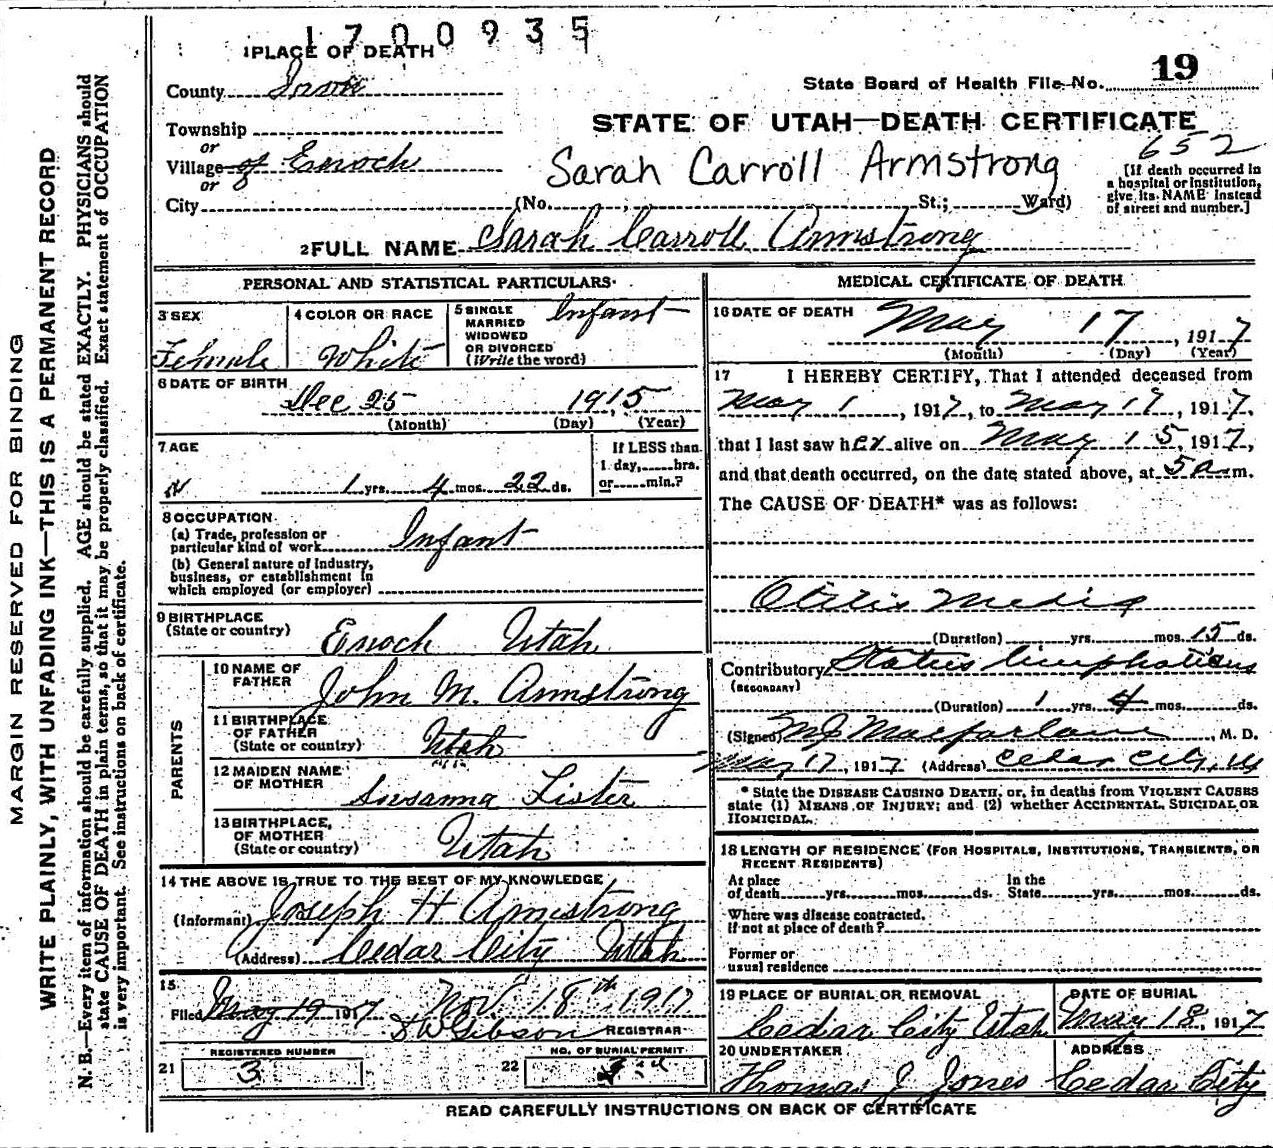 1700935
1 PLACE OF DEATH
County Iron
State Board of Health File No. 19
Township
or
Village of Enoch
or
City
STATE OF UTAH—DEATH CERTIFICATE
652
Sarah Carroll Armstrong
(No. St.; Ward)
[If death occurred in
a hospital or institution,
give its NAME instead
of street and number.]
2 FULL NAME Sarah Carroll Armstrong
PERSONAL AND STATISTICAL PARTICULARS
3 SEX
Female
4 COLOR OR RACE
White
5 SINGLE
MARRIED
WIDOWED
OR DIVORCED
(Write the word)
Infant
6 DATE OF BIRTH
Dec 25 1915
(Month) (Day) (Year)
7 AGE
1 yrs. 4 mos. 22 ds.
If LESS than
1 day, hrs.
or min.?
8 OCCUPATION
(a) Trade, profession or
particular kind of work Infant
(b) General nature of Industry,
business, or establishment in
which employed (or employer)
9 BIRTHPLACE
(State or country) Enoch Utah
PARENTS
10 NAME OF
FATHER John M. Armstrong
11 BIRTHPLACE
OF FATHER
(State or country) Utah
12 MAIDEN NAME
OF MOTHER Susanna Lister
13 BIRTHPLACE,
OF MOTHER
(State or country) Utah
14 THE ABOVE IS TRUE TO THE BEST OF MY KNOWLEDGE
(Informant) Joseph H Armstrong
(Address) Cedar City Utah
15
Filed May 19 1917 Nov. 18th 1917
SW Gibson REGISTRAR
21 REGISTERED NUMBER
3
22 NO. OF BURIAL PERMIT
MEDICAL CERTIFICATE OF DEATH
16 DATE OF DEATH
May 17, 1917
(Month) (Day) (Year)
17 I HEREBY CERTIFY, That I attended deceased from
May 1, 1917, to May 17, 1917,
that I last saw her alive on May 15, 1917,
and that death occurred, on the date stated above, at 5 a m.
The CAUSE OF DEATH* was as follows:
Otitis Media
(Duration) yrs. mos. 15 ds.
Contributory Status limphaticus
(SECONDARY)
(Duration) 1 yrs. 4 mos. ds.
(Signed) M J Macfarlane, M. D.
May 17, 1917 (Address) Cedar City, U
* State the DISEASE CAUSING DEATH, or, in deaths from VIOLENT CAUSES
state (1) MEANS OF INJURY; and (2) whether ACCIDENTAL, SUICIDAL OR
HOMICIDAL.
18 LENGTH OF RESIDENCE (FOR HOSPITALS, INSTITUTIONS, TRANSIENTS, OR
RECENT RESIDENTS)
At place
of death yrs. mos. ds.
In the
State yrs. mos. ds.
Where was disease contracted,
If not at place of death?
Former or
usual residence
19 PLACE OF BURIAL OR REMOVAL
Cedar City Utah
DATE OF BURIAL
May 18, 1917
20 UNDERTAKER
Thomas J Jones
ADDRESS
Cedar City
READ CAREFULLY INSTRUCTIONS ON BACK OF CERTIFICATE
MARGIN RESERVED FOR BINDING
WRITE PLAINLY, WITH UNFADING INK—THIS IS A PERMANENT RECORD
N. B.—Every item of information should be carefully supplied. AGE should be stated EXACTLY. PHYSICIANS should
state CAUSE OF DEATH in plain terms, so that it may be properly classified. Exact statement of OCCUPATION
is very important. See instructions on back of certificate.